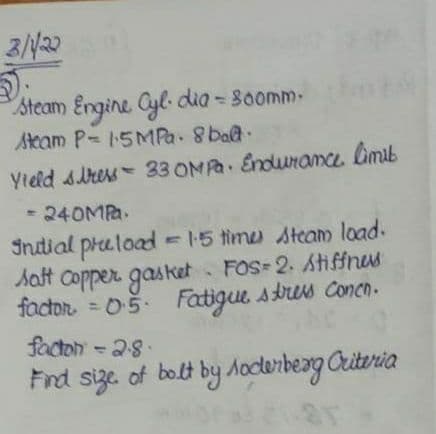 3/1/22
2).
Steam Engine Cyl. dia = 300mm.
Steam P = 1.5MPa. 8 bolt.
Yield stress = 330MPa. Endurance limit
= 240MPa.
Initial preload = 1.5 times steam load.
Soft copper gasket. FOS = 2. Stiffness
factor = 0.5. Fatigue stress concn.
factor = 2.8.
Find size of bolt by Soderberg Criteria